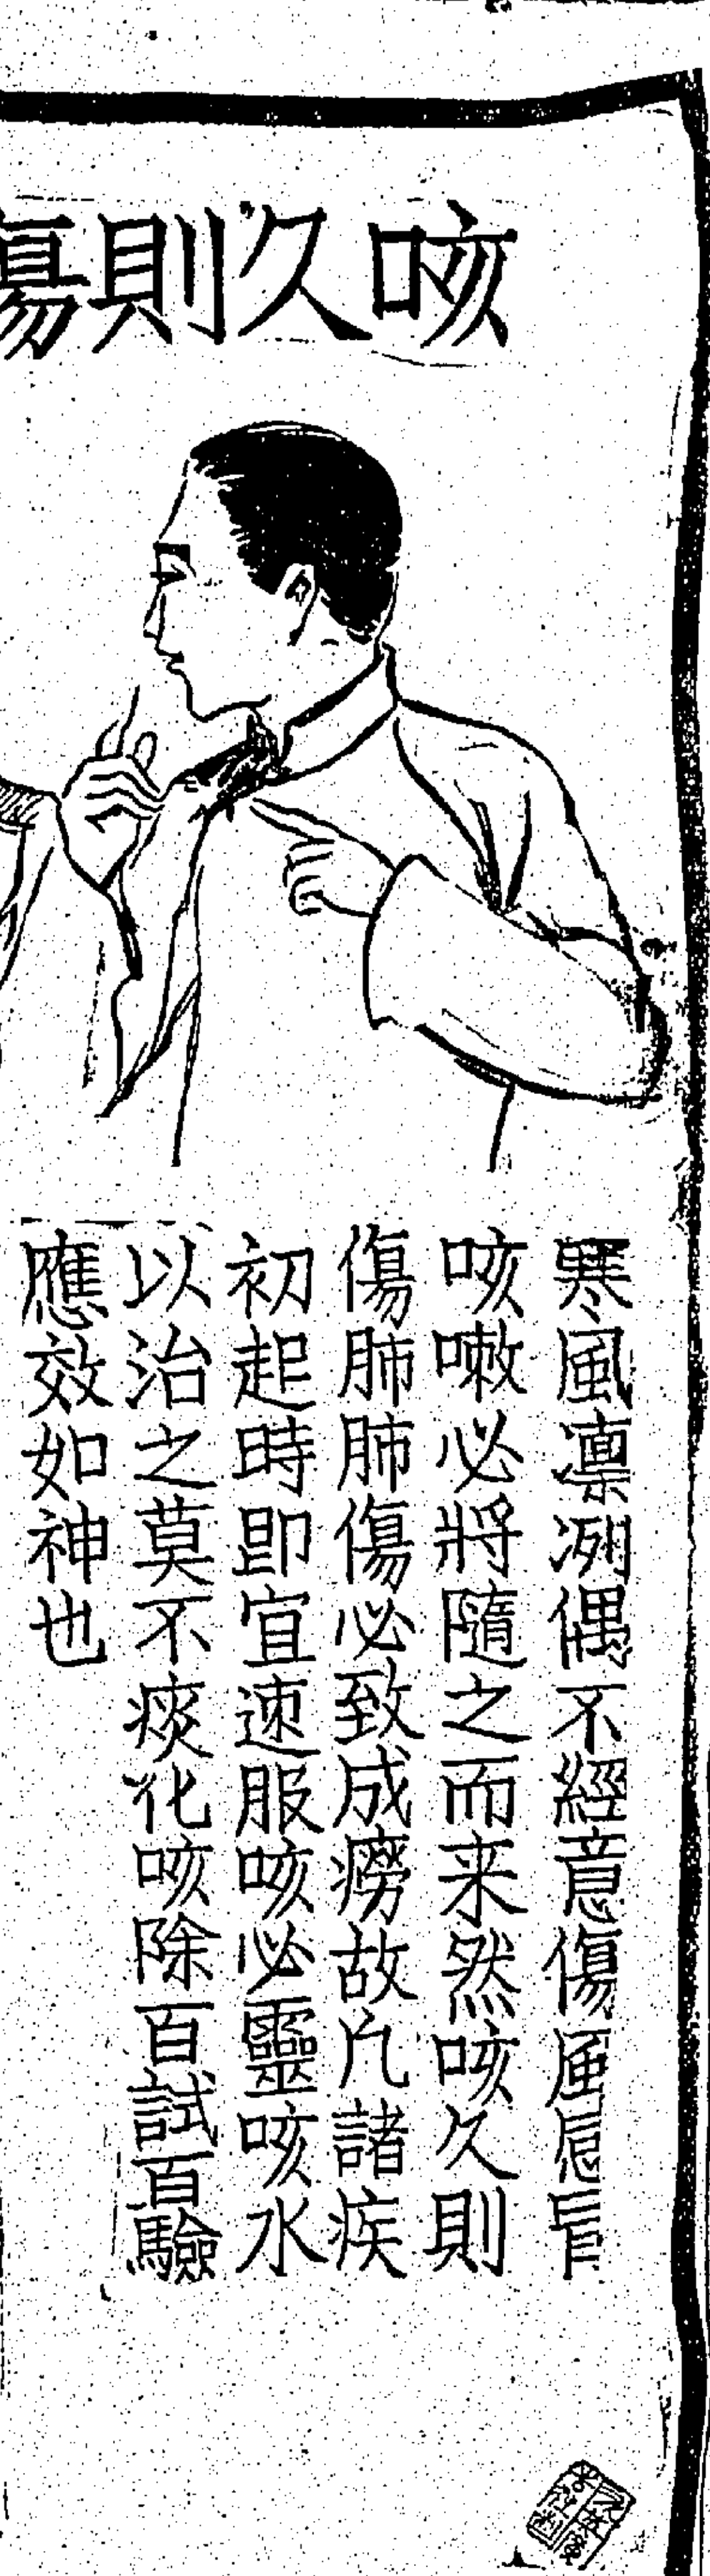 咳久則傷
寒風凛冽偶不經意傷風咳
咳嗽必將隨之而来然咳久則
傷肺肺傷必致成癆故凢諸疾
初起時即宜速服咳必靈咳水
以治之莫不痰化咳除百試百驗
應效如神也